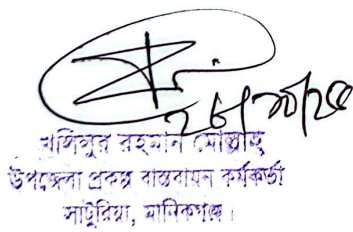 ২৮/১০/২৫
খলিলুর রহমান মোল্লাহ্
উপজেলা প্রকল্প বাস্তবায়ন কর্মকর্তা
সাটুরিয়া, মানিকগঞ্জ।